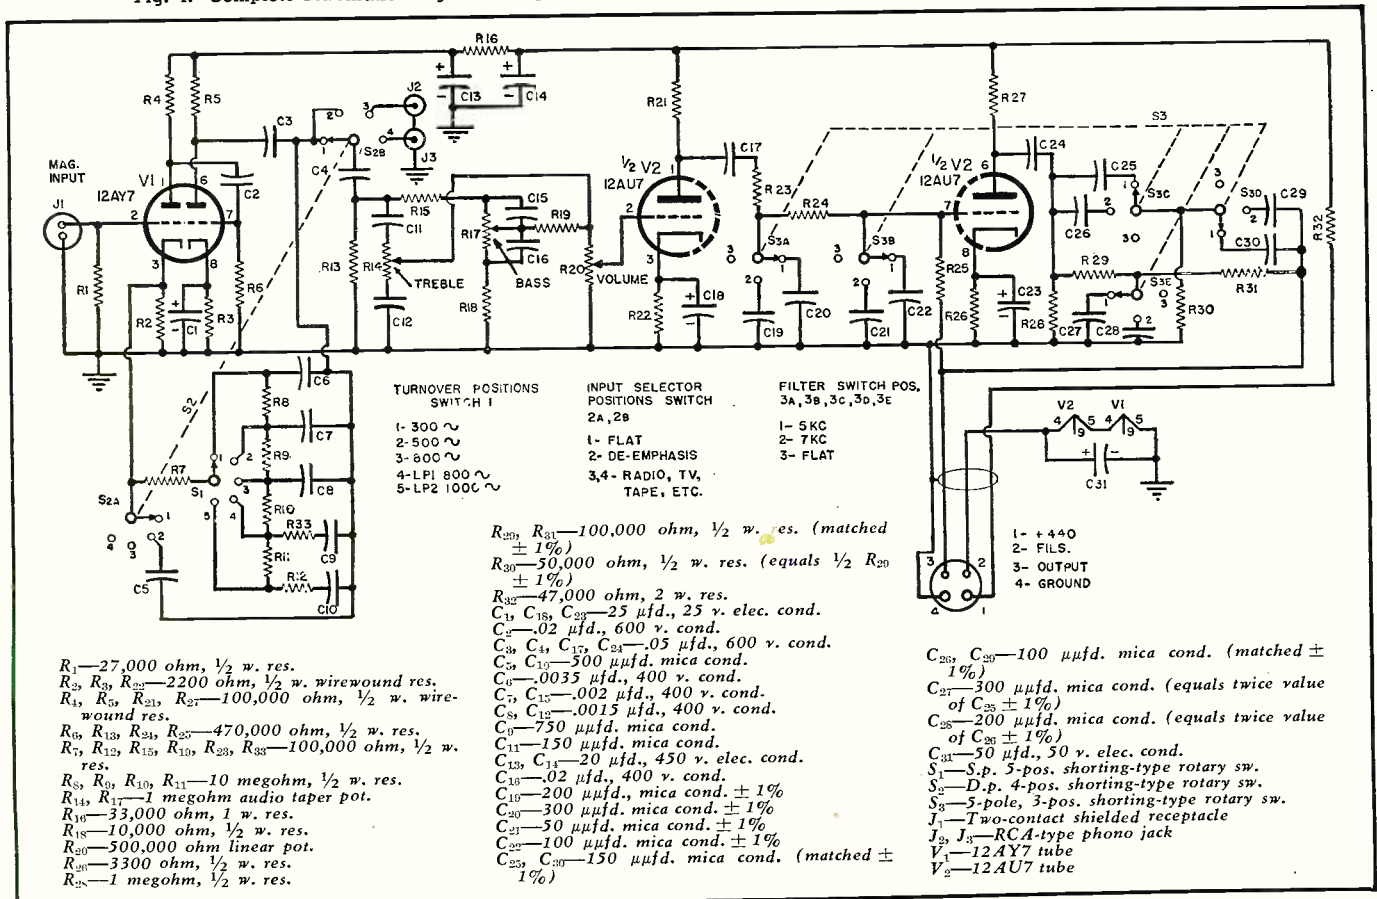 R16
C13
C14
J2
J3
R4
R5
C3
2
3
4
1
S2B
C4
MAG.
INPUT
J1
V1
12AY7
1
6
2
7
3
8
C2
R1
R2
C1
R3
R6
R13
R14
C11
R15
TREBLE
C12
R17
C15
C16
BASS
R18
R19
R20
VOLUME
R21
1/2 V2
12AU7
1
2
3
R22
C18
C17
R23
R24
3
S3A
1
2
C19
C20
3
S3B
1
2
C21
C22
R25
R27
1/2 V2
12AU7
6
7
8
R26
C23
R28
C24
S3
C25
1
S3C
C26
2
3
R29
C27
C28
1
S3E
3
2
R30
3
S3D
2
1
C29
C30
R31
R32
S2
R7
S1
1
2
3
4
5
S2A
1
2
3
4
C5
R8
R9
R10
R11
R12
R33
C6
C7
C8
C9
C10
TURNOVER POSITIONS
SWITCH 1
1- 300 ~
2- 500 ~
3- 800 ~
4-LP1 800 ~
5-LP2 1000 ~
INPUT SELECTOR
POSITIONS SWITCH
2A, 2B
1- FLAT
2- DE-EMPHASIS
3,4- RADIO, TV,
TAPE, ETC.
FILTER SWITCH POS.
3A, 3B, 3C, 3D, 3E
1- 5 KC
2- 7KC
3- FLAT
V2
V1
4
5
9
4
5
9
C31
3
2
4
1
1- +440
2- FILS.
3- OUTPUT
4- GROUND
R1—27,000 ohm, 1/2 w. res.
R2, R3, R22—2200 ohm, 1/2 w. wirewound res.
R4, R5, R21, R27—100,000 ohm, 1/2 w. wire-
wound res.
R6, R13, R24, R25—470,000 ohm, 1/2 w. res.
R7, R12, R15, R19, R23, R33—100,000 ohm, 1/2 w.
res.
R8, R9, R10, R11—10 megohm, 1/2 w. res.
R14, R17—1 megohm audio taper pot.
R16—33,000 ohm, 1 w. res.
R18—10,000 ohm, 1/2 w. res.
R20—500,000 ohm linear pot.
R26—3300 ohm, 1/2 w. res.
R28—1 megohm, 1/2 w. res.
R29, R31—100,000 ohm, 1/2 w. res. (matched
± 1%)
R30—50,000 ohm, 1/2 w. res. (equals 1/2 R29
± 1%)
R32—47,000 ohm, 2 w. res.
C1, C18, C23—25 μfd., 25 v. elec. cond.
C2—.02 μfd., 600 v. cond.
C3, C4, C17, C24—.05 μfd., 600 v. cond.
C5, C10—500 μμfd. mica cond.
C6—.0035 μfd., 400 v. cond.
C7, C15—.002 μfd., 400 v. cond.
C8, C12—.0015 μfd., 400 v. cond.
C9—750 μμfd. mica cond.
C11—150 μμfd. mica cond.
C13, C14—20 μfd., 450 v. elec. cond.
C16—.02 μfd., 400 v. cond.
C19—200 μμfd., mica cond. ± 1%
C20—300 μμfd. mica cond. ± 1%
C21—50 μμfd. mica cond. ± 1%
C22—100 μμfd. mica cond. ± 1%
C25, C30—150 μμfd. mica cond. (matched ±
1%)
C26, C29—100 μμfd. mica cond. (matched ±
1%)
C27—300 μμfd. mica cond. (equals twice value
of C25 ± 1%)
C28—200 μμfd. mica cond. (equals twice value
of C26 ± 1%)
C31—50 μfd., 50 v. elec. cond.
S1—S.p. 5-pos. shorting-type rotary sw.
S2—D.p. 4-pos. shorting-type rotary sw.
S3—5-pole, 3-pos. shorting-type rotary sw.
J1—Two-contact shielded receptacle
J2, J3—RCA-type phono jack
V1—12AY7 tube
V2—12AU7 tube